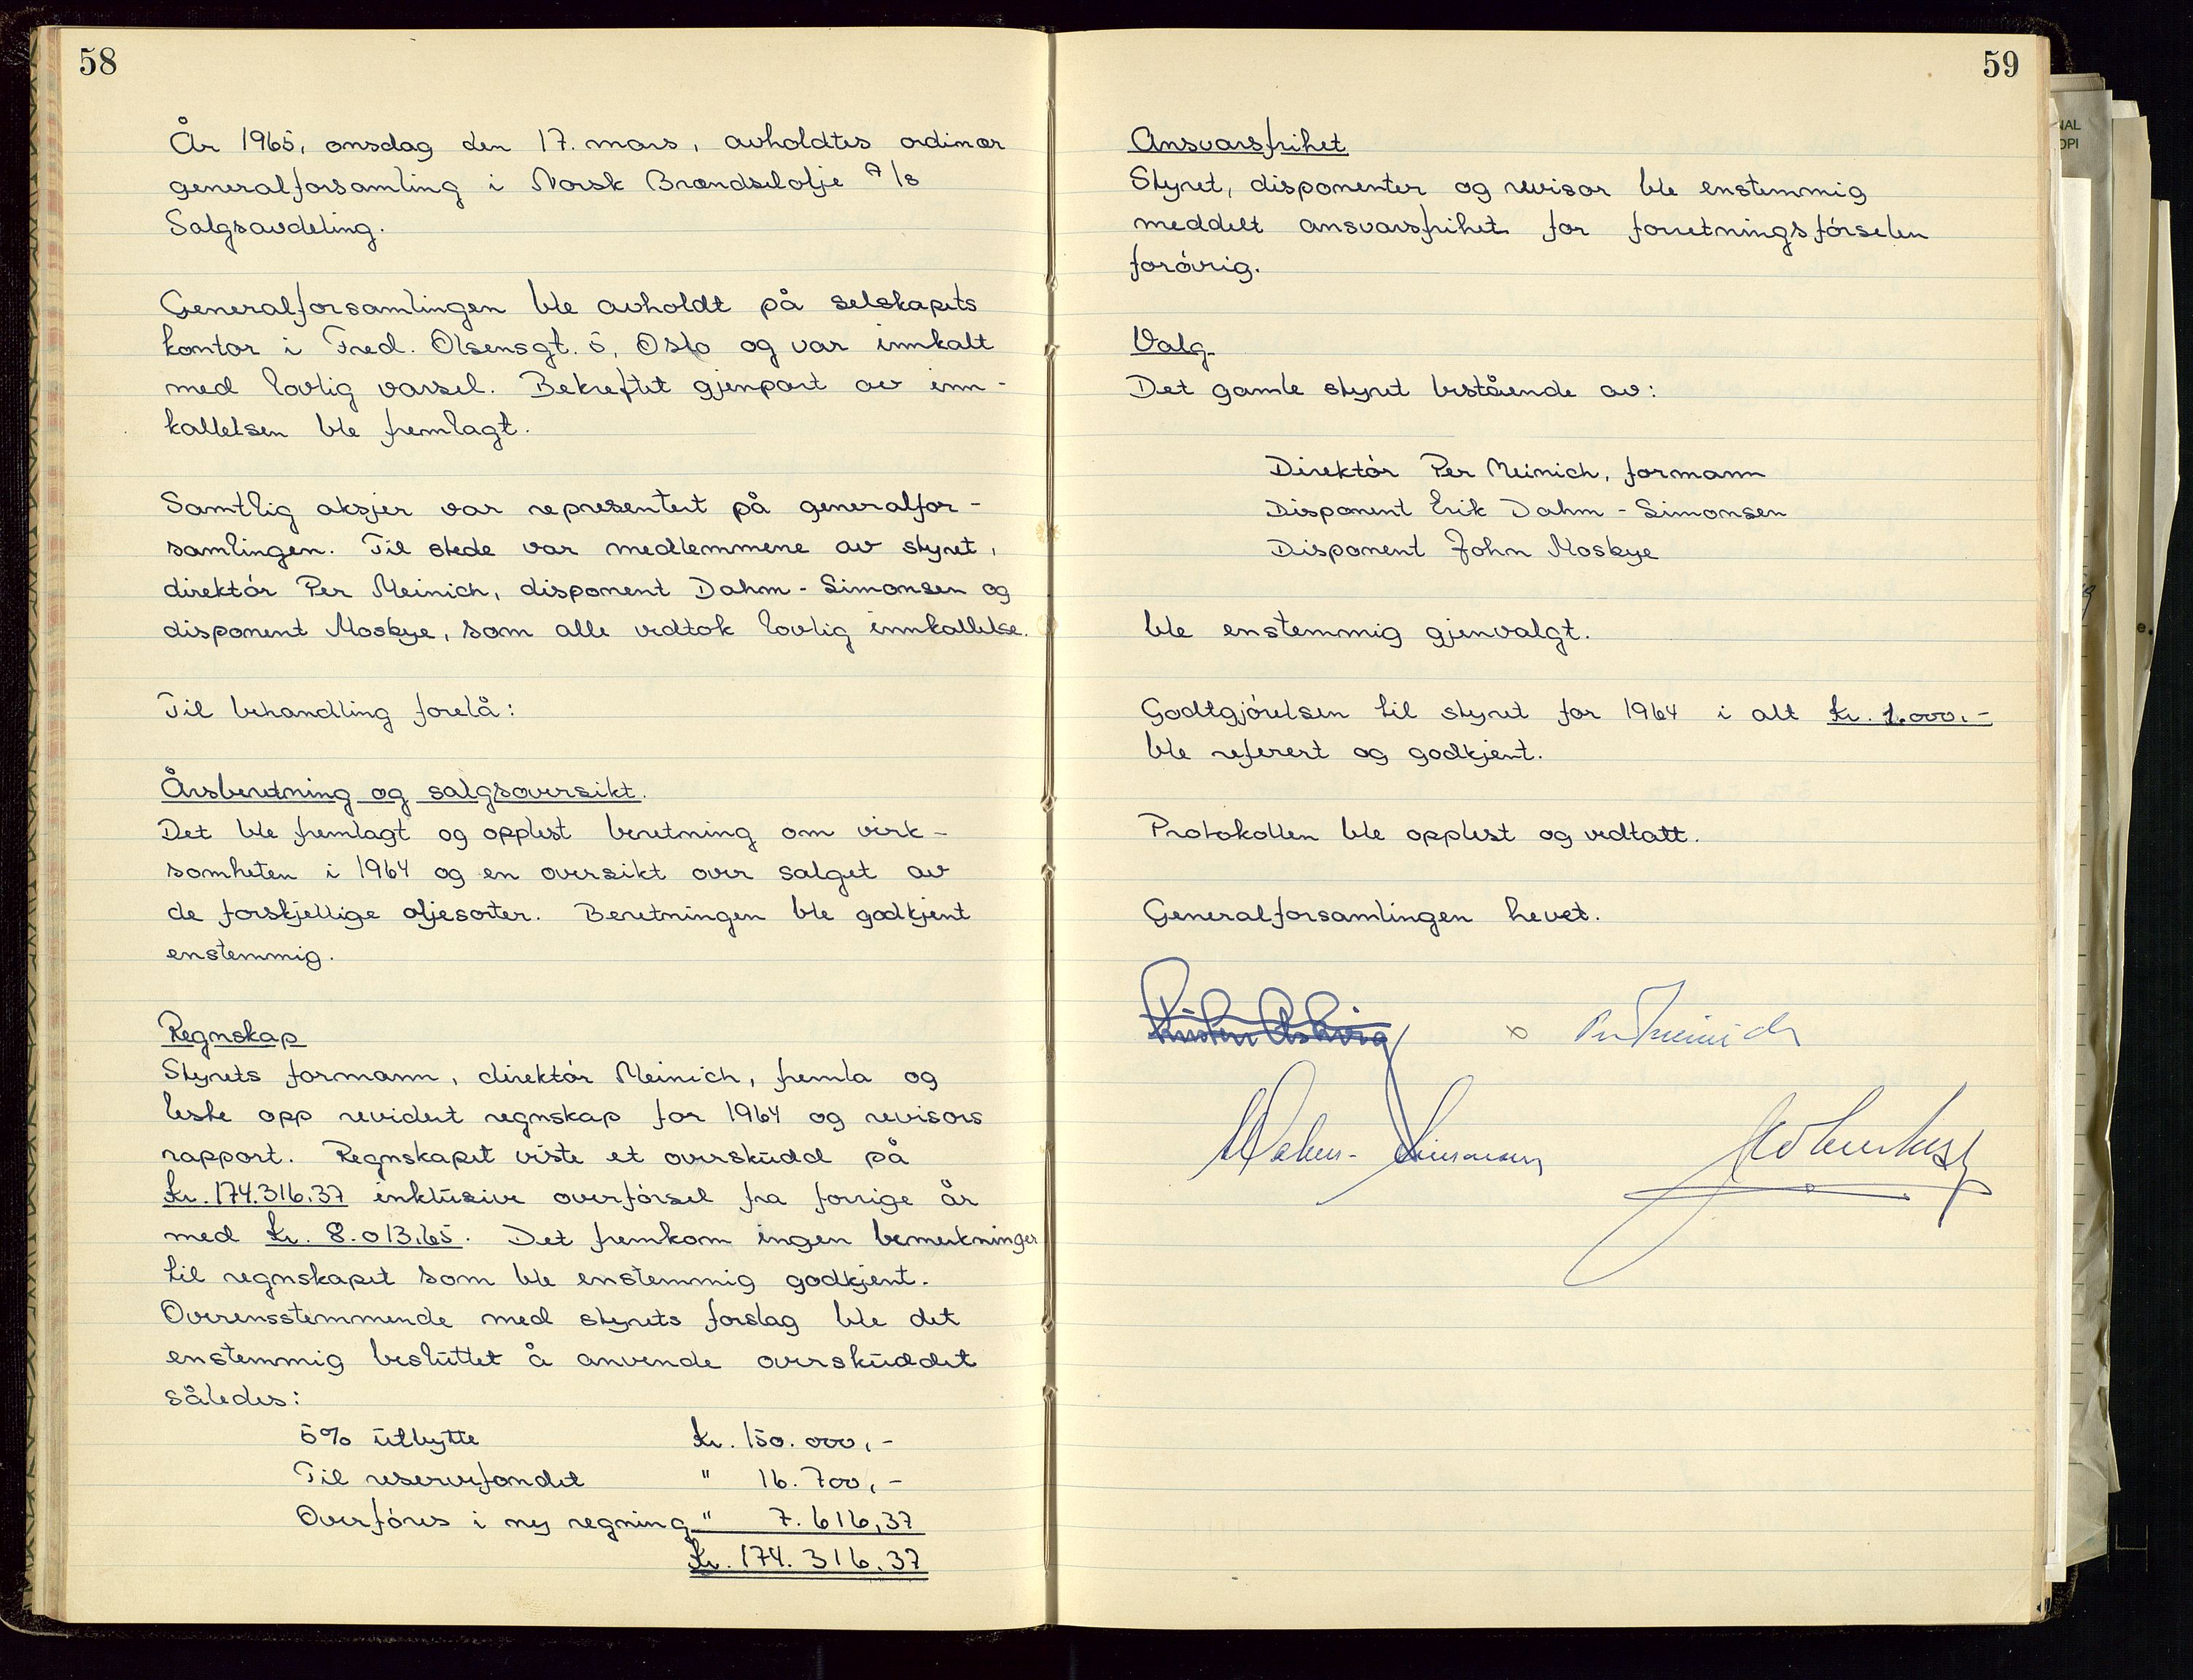 58
År 1965, onsdag den 17. mars, avholdtes ordinær
generalforsamling i Norsk Brændselolje A/S
Salgsavdeling.
Generalforsamlingen ble avholdt på selskapets
kontor i Fred. Olsensgt. 5, Oslo og var innkalt
med lovlig varsel. Bekreftet gjenpart av inn-
kallelsen ble fremlagt.
Samtlig aksjer var representert på generalfor-
samlingen. Til stede var medlemmene av styret,
direktör Per Meinich, disponent Dahm-Simonsen og
disponent Moskye, som alle vedtok lovlig innkallelse.
Til behandling forelå:
Årsberetning og salgsoversikt.
Det ble fremlagt og opplest beretning om virk-
somheten i 1964 og en oversikt over salget av
de forskjellige oljesorter. Beretningen ble godkjent
enstemmig.
Regnskap
Styrets formann, direktör Meinich, fremla og
leste opp revidert regnskap for 1964 og revisors
rapport. Regnskapet viste et overskudd på
Kr. 174.316,37 inklusive overförsel fra forrige år
med Kr. 8.013,65. Det fremkom ingen bemerkninger
til regnskapet som ble enstemmig godkjent.
Overensstemmende med styrets forslag ble det
enstemmig besluttet å anvende overskuddet
således:
5% utbytte Kr. 150.000,-
Til reservefondet " 16.700,-
Overföres i ny regning " 7.616,37
Kr. 174.316,37
59
Ansvarsfrihet
Styret, disponenter og revisor ble enstemmig
meddelt ansvarsfrihet for forretningsförselen
forövrig.
Valg
Det gamle styret bestående av:
Direktör Per Meinich, formann
Disponent Erik Dahm-Simonsen
Disponent John Moskye
ble enstemmig gjenvalgt.
Godtgjörelsen til styret for 1964 i alt Kr. 1.000.-
ble referert og godkjent.
Protokollen ble opplest og vedtatt.
Generalforsamlingen hevet.
Per Meinich
Dahm-Simonsen